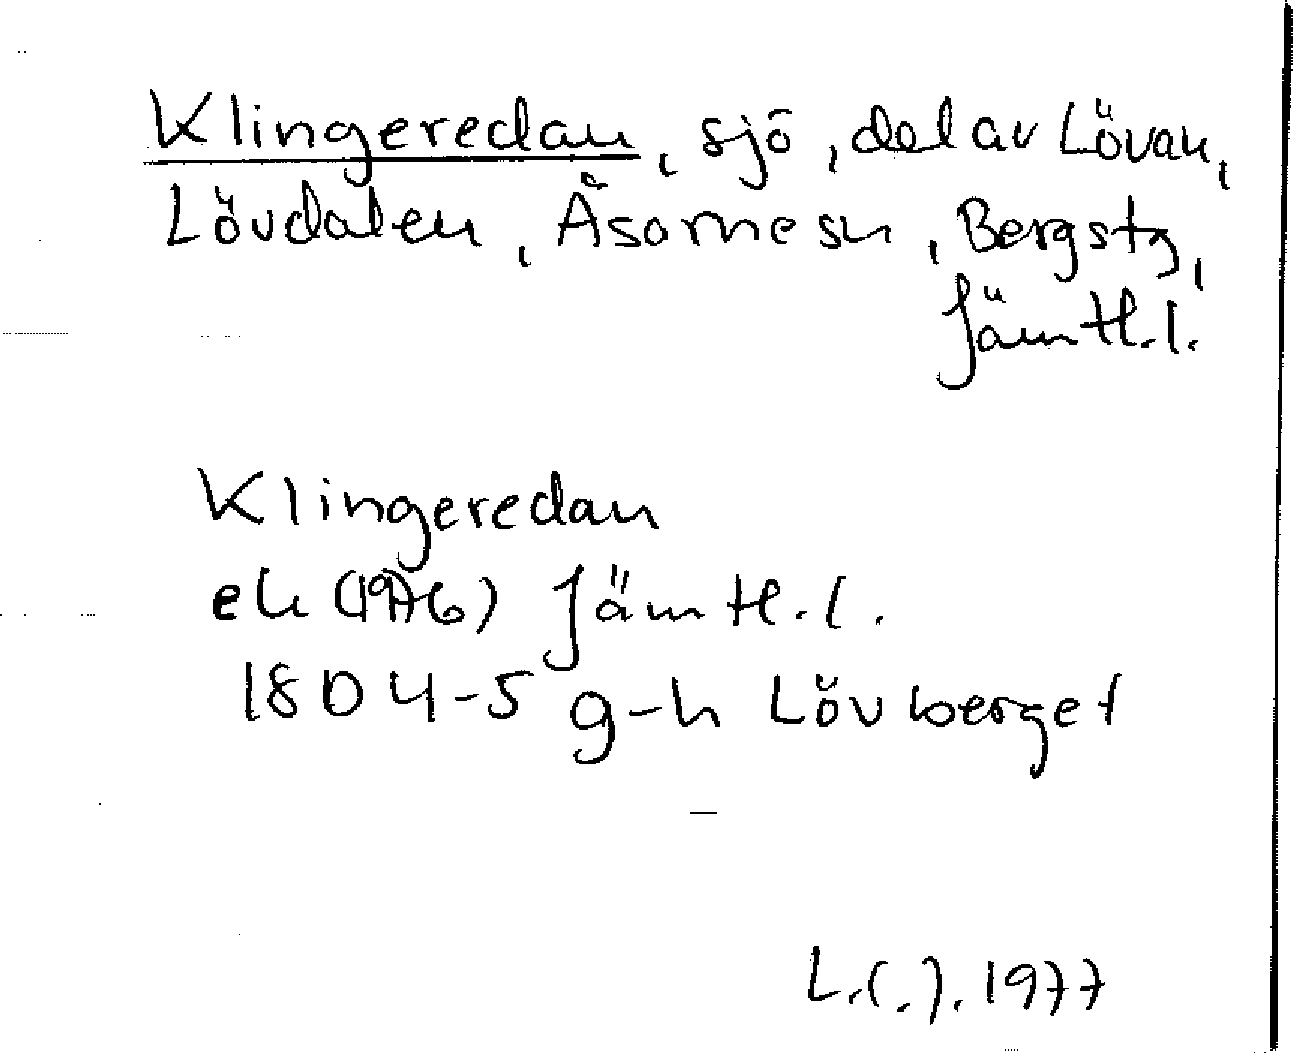 Klingeredan, sjö, del av Lövan,
Lövdalen, Åsarne sn, Bergs tg,
Jämtl.l.
Klingeredan
ek (1976) Jämtl.l.
18D 4-5 g-h Lövberget
L.(.). 1977